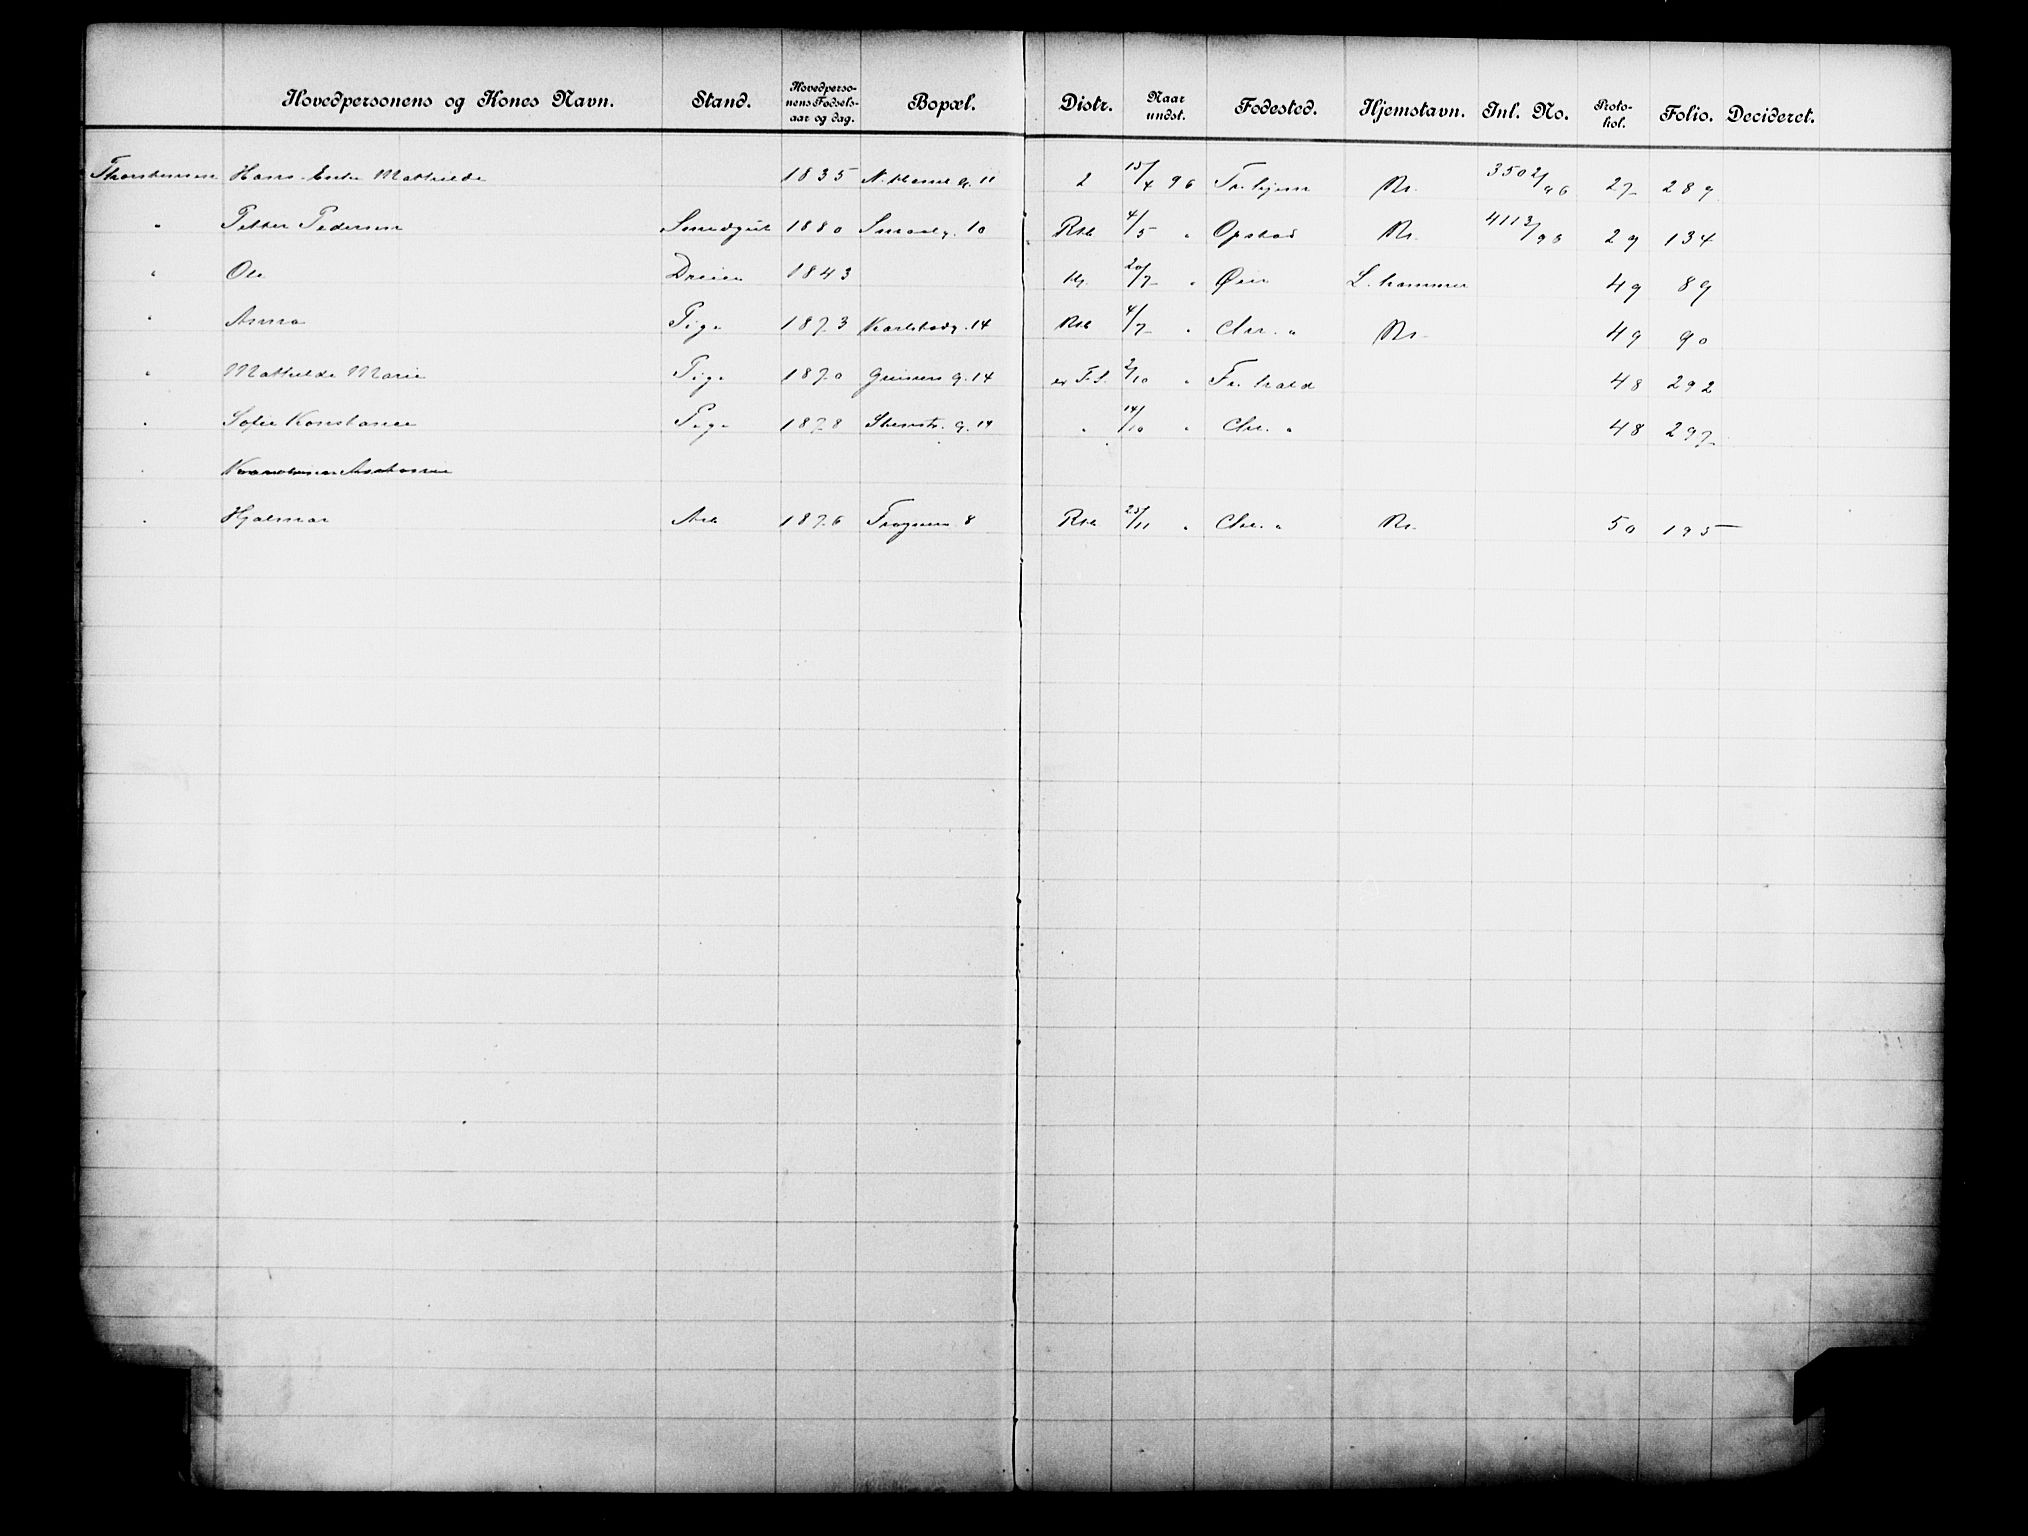 Hovedpersonens og Kones Navn. Stand. Hovedpersonens Fødselsaar og dag. Bopæl. Distr. Naar undst. Fødested. Hjemstavn. Inl. No. Protokol. Folio. Decideret.
Thorstensen Hans Enke Mathilde 1835 g. 11 2 15/4 96 Tr.hjem Kr. 3502/96 27 289
" Petter Pedersen Smedgut 1880 Smaalg. 10 Rst 4/5 " Opstad Kr. 4113/96 29 134
" Ole Dreier 1843 20/7 " Øier L.hammer 49 89
" Anna Pige 1873 Karlstadg. 14 Rst 4/7 " Chr. " Kr. 49 90
" Mathilde Marie Pige 1870 g. 14 2/10 " Fr.hald 48 292
" Sofie Konstance Pige 1878 Stenstr. g. 19 " 14/10 " Chr. " 48 297
"
" Hjalmar Arb 1876 Frognerv. 8 Rst 25/11 " Chr. " Kr. 50 195